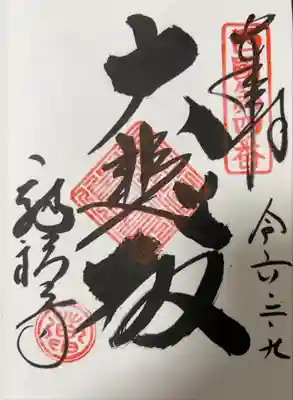 奉拝
令六・二・九
大悲殿
龍福寺